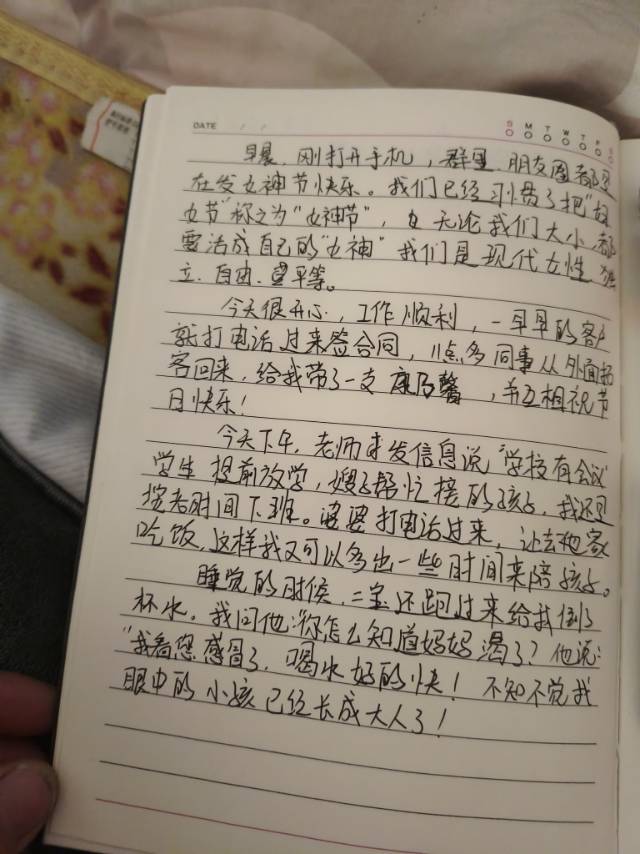 DATE / /
S M T W T F S
早晨、刚打开手机，群里、朋友圈都是
在发女神节快乐。我们已经习惯了把"妇
女节"称之为"女神节"，无论我们大小都
要活成自己的"女神"我们是现代女性独
立、自由、平等。
今天很开心，工作顺利，一早早的客户
就打电话过来签合同，11点多同事从外面拓
客回来，给我带了一支康乃馨，并互相祝节
日快乐！
今天下午，老师来发信息说"学校有会议
学生提前放学，嫂子帮忙接的孩子，我还是
按老时间下班。婆婆打电话过来，让去他家
吃饭，这样我又可以多出一些时间来陪孩子。
睡觉的时候，二宝还跑过来给我倒了
杯水，我问他："你怎么知道妈妈渴了？他说：
"我看您感冒了，喝水好的快！不知不觉我
眼中的小孩已经长成大人了！